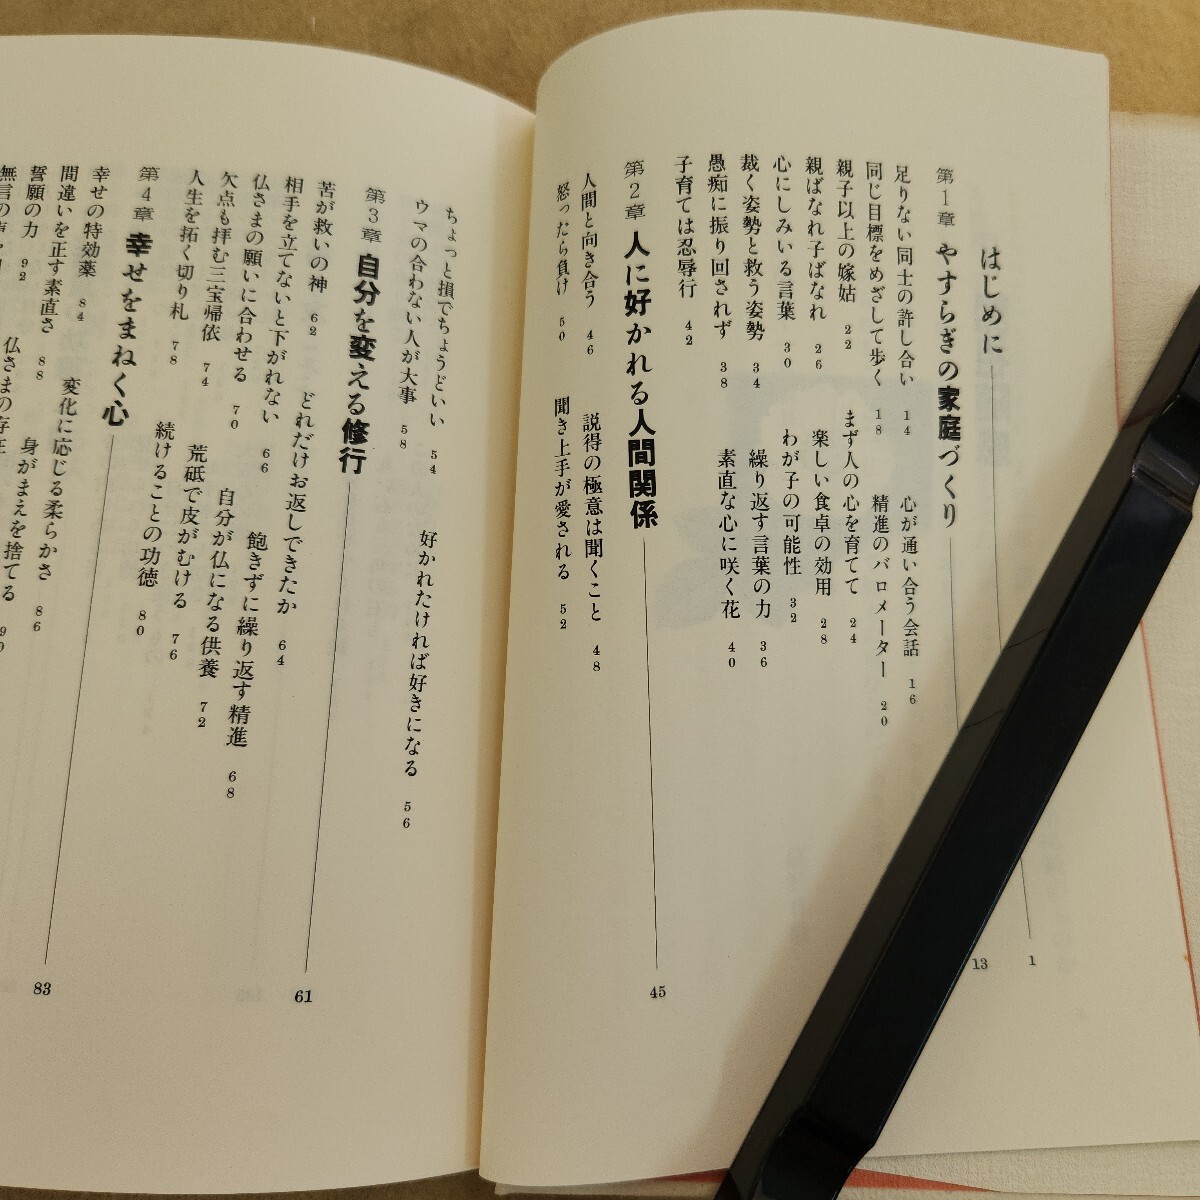 はじめに 1
第1章 やすらぎの家庭づくり 13
足りない同士の許し合い 14 心が通い合う会話 16
同じ目標をめざして歩く 18 精進のバロメーター 20
親子以上の嫁姑 22 まず人の心を育てて 24
親ばなれ子ばなれ 26 楽しい食卓の効用 28
心にしみいる言葉 30 わが子の可能性 32
裁く姿勢と救う姿勢 34 繰り返す言葉の力 36
愚痴に振り回されず 38 素直な心に咲く花 40
子育ては忍辱行 42
第2章 人に好かれる人間関係 45
人間と向き合う 46 説得の極意は聞くこと 48
怒ったら負け 50 聞き上手が愛される 52
ちょっと損でちょうどいい 54 好かれたければ好きになる 56
ウマの合わない人が大事 58
第3章 自分を変える修行 61
苦が救いの神 62 どれだけお返しできたか 64
相手を立てないと下がれない 66 飽きずに繰り返す精進 68
仏さまの願いに合わせる 70 自分が仏になる供養 72
欠点も拝む三宝帰依 74 荒砥で皮がむける 76
人生を拓く切り札 78 続けることの功徳 80
第4章 幸せをまねく心 83
幸せの特効薬 84 変化に応じる柔らかさ 86
間違いを正す素直さ 88 身がまえを捨てる 90
誓願の力 92 仏さまの存在
無言の